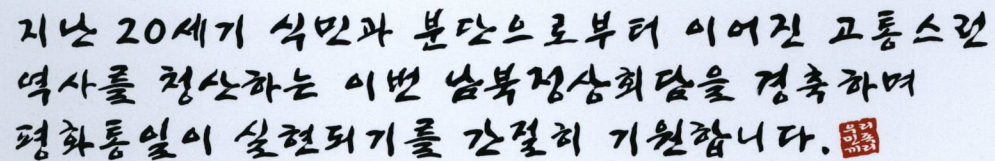 지난 20세기 식민과 분단으로부터 이어진 고통스런
역사를 청산하는 이번 남북정상회담을 경축하며
평화통일이 실현되기를 간절히 기원합니다.
우리
민족
끼리